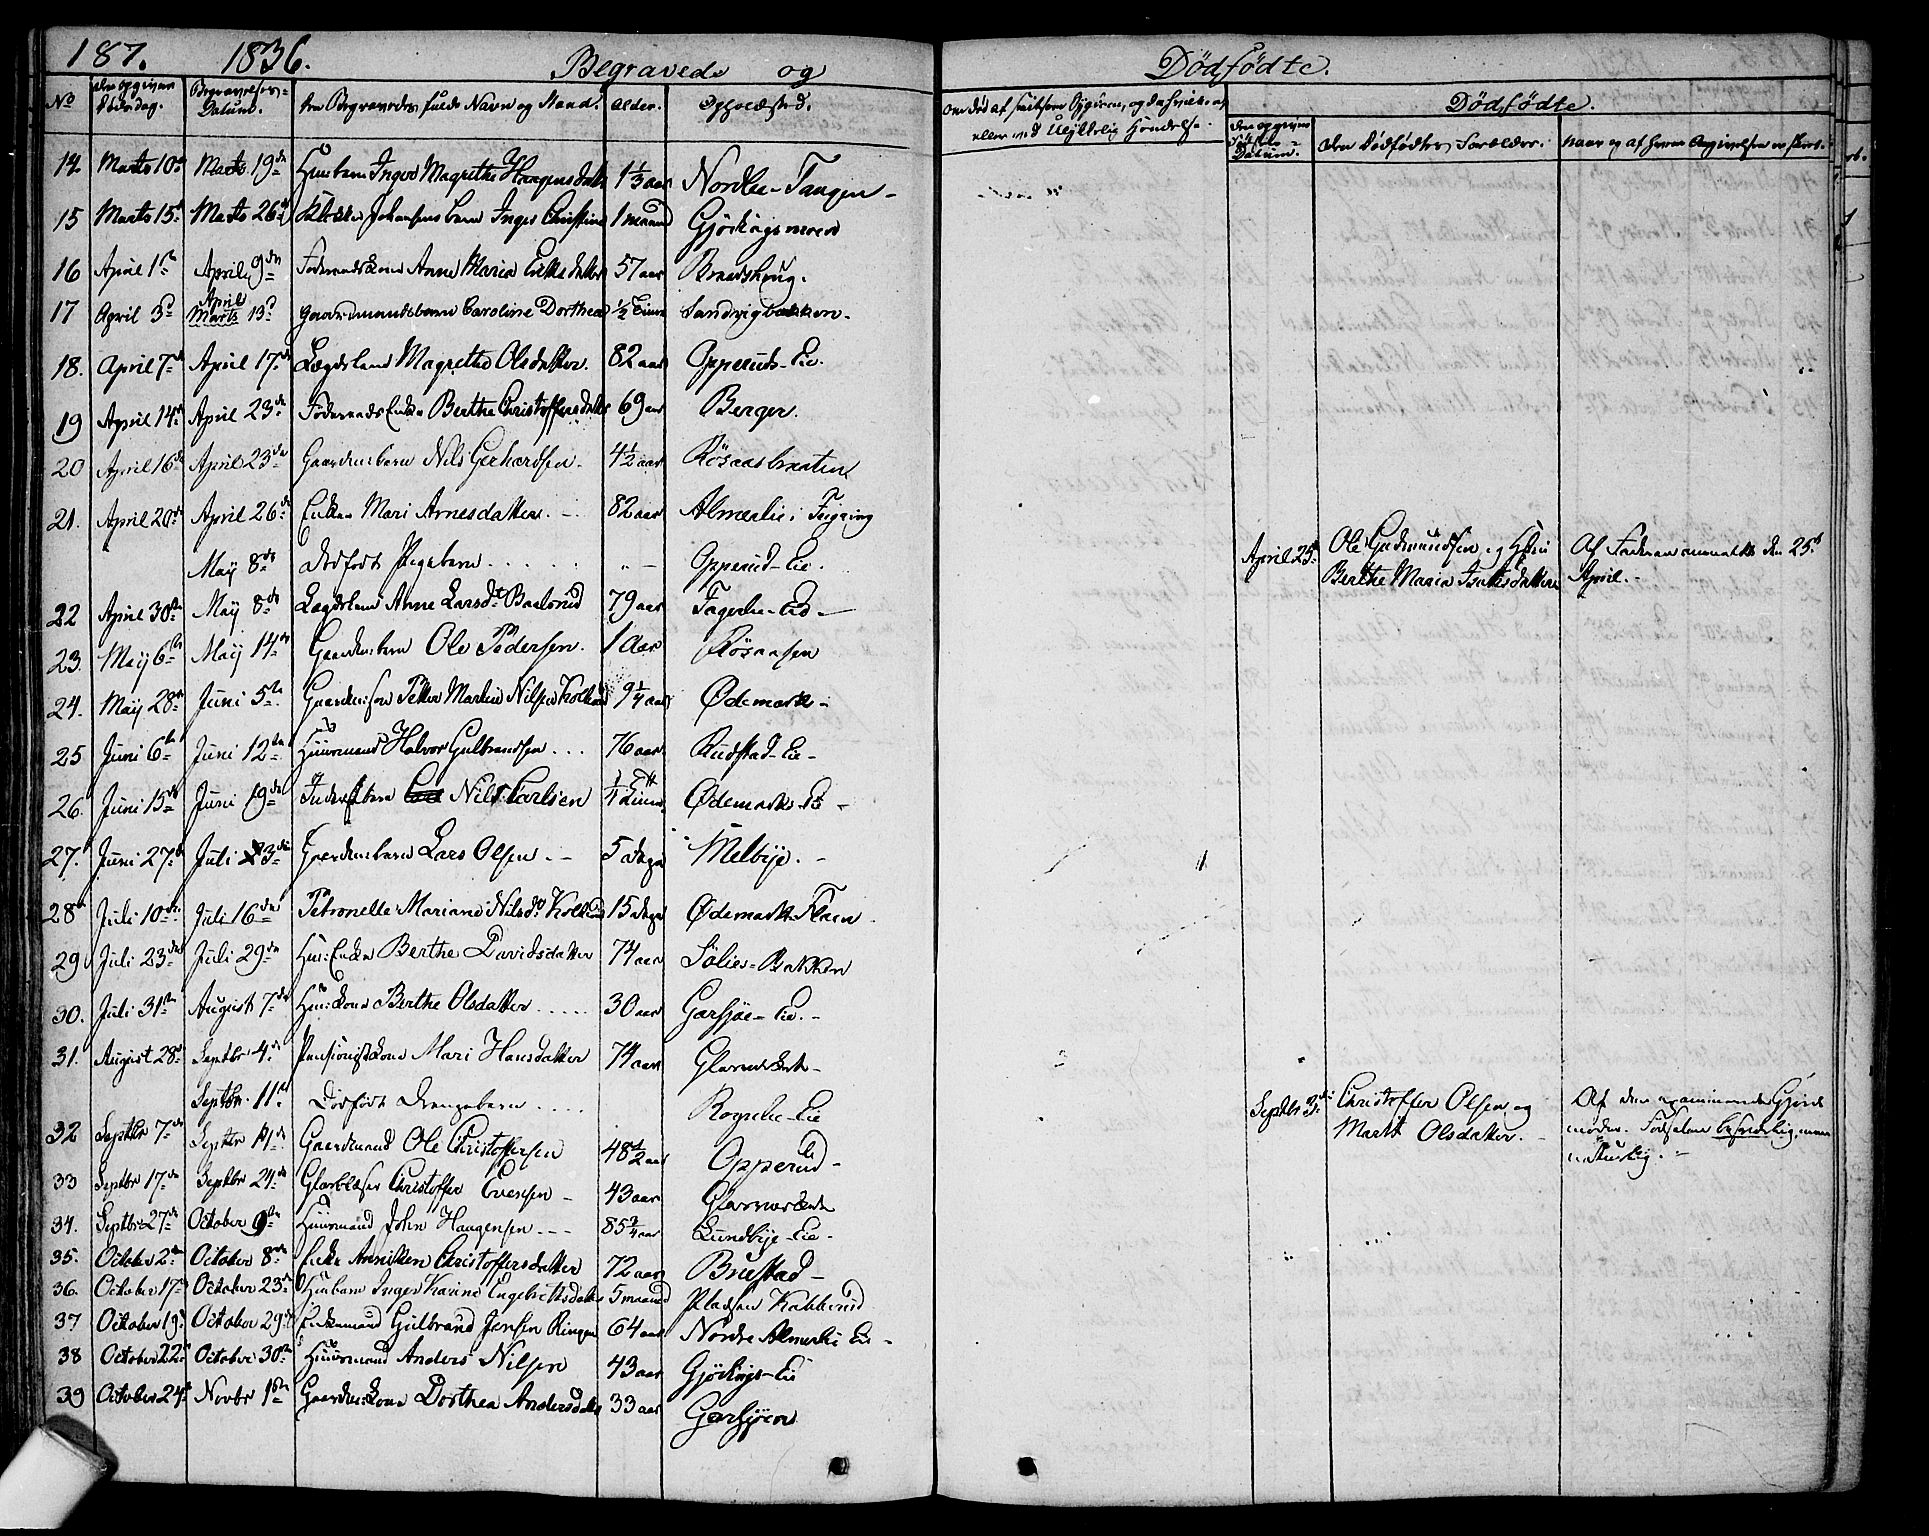 187. 1836. Begravede og Dödfödte.
No Den opgivne Dødsdag. Begravelses-Datum. Den Begravedes fulde Navn og Stand. Alder. Opholdssted.
Dödfödte.
den opgivne Födsels-Datum. den Dödfödtes Forældre. naar og af hvem Angivelsen er skeet.
14. Marts 10de Marts 19de Huusbarn Inger Magrethe Haagensdatter 1 1/3 aar Nordlie-Tangen-
15 Marts 15de Marts 26de Klokker Johansens barn Inger Christine 1 maaned Gjörkugsmoen
16 April 1ste April 9de Föderaadskone Anne Maria Eriksdatter 57 aar Brandshoug.
17 April 3die April Marts 13de Gaardmandsbarn Caroline Dorthea 1/2 Time Sandvigbakken.
18. April 7de April 17de Lægdslem Magrethe Olsdatter. 82 aar Opperuds-Eie.
19 April 14de April 23de Föderaads Enke Berthe Christoffersdatter 69 aar Berger.
20 April 16de April 23de Gaardmsbarn Nils Gerhardsen. 4 1/2 aar Rösaasbraaten
21. April 20de April 26de Enken Mari Arnesdatter. 82 aar Almerlie i Feiring
May 8de Dödfödt Pigebarn Opperud-Eie. April 25de Ole Gudmundsen og Hustru Af Faderen anmeldt den 25de
Berthe Maria Isaksdatter April.
22 April 30te May 8de Lægdslem Anne Larsdt Baalsrud 79 aar Fagerlie-Eie-
23. May 6te May 14de Gaardmsbarn Ole Pedersen. 1 Aar Rösaasen
24. May 28de Juni 5te Gaardm:sön Petter Martin Nilsen Kolkind 9 1/4 aar Ødemark-
25 Juni 6te Juni 12te Huusmand Halvor Gulbrandsen 76 aar Rudstad-Eie-
26. Juni 15de Juni 19de Inderstbarn Nils Carlsen 1/4 Time Ødemarks-Eie-
27. Juni 27de Juli 3die Gaardmsbarn Lars Olsen 5 dage Melbye.
28 Juli 10de Juli 16de Petronelle Mariane Nilsdt Kolkind 15 dage Ødemark-Flaen
29 Juli 23de Juli 29de Hus:Enke Berthe Davidsdatter 74 aar Sölies-Bakken
30. Juli 31te August 7de Huuskone Berthe Olsdatter 30 aar Garsjöe-Eie.
31. August 28de Septbr 4de Pensionistkone Mari Hansdatter 74 aar Glasværket-
Septbr. 11te Dödfödt Drengebarn Rognlie-Eie Septbr 3die Christoffer Olsen og Af den examinerede Gjord-
Marte Olsdatter. moder. Fødselen besværlig, men
naturlig.
32 Septbr 7de Septbr 11de Gaardmand Ole Christoffersen 48 1/2 aar Opperud-
33 Septbr 17de Septbr 24de Glasblæser Christoffer Evensen 43 aar Glasværket
34. Septbr 27de October 9de Huusmand John Haagensen 85 3/4 aar Lundbye-Eie-
35. October 2de October 8de Enke Anniken Christoffersdatter 72 aar Brustad-
36. October 17de October 23de Husbarn Inger Karine Engebretsdatter 5 maaned Pladsen Kabberud
37 October 19de October 29de Enkemand Gulbrand Jensen Ringen 64 aar Nordre Almerlie Eie-
38 October 22de October 30te Huusmand Anders Nilsen 43 aar Gjödings-Eie
39 October 24de Novbr 1ste Gaardm:kone Dorthea Andersdatter 33 aar Garsjöen